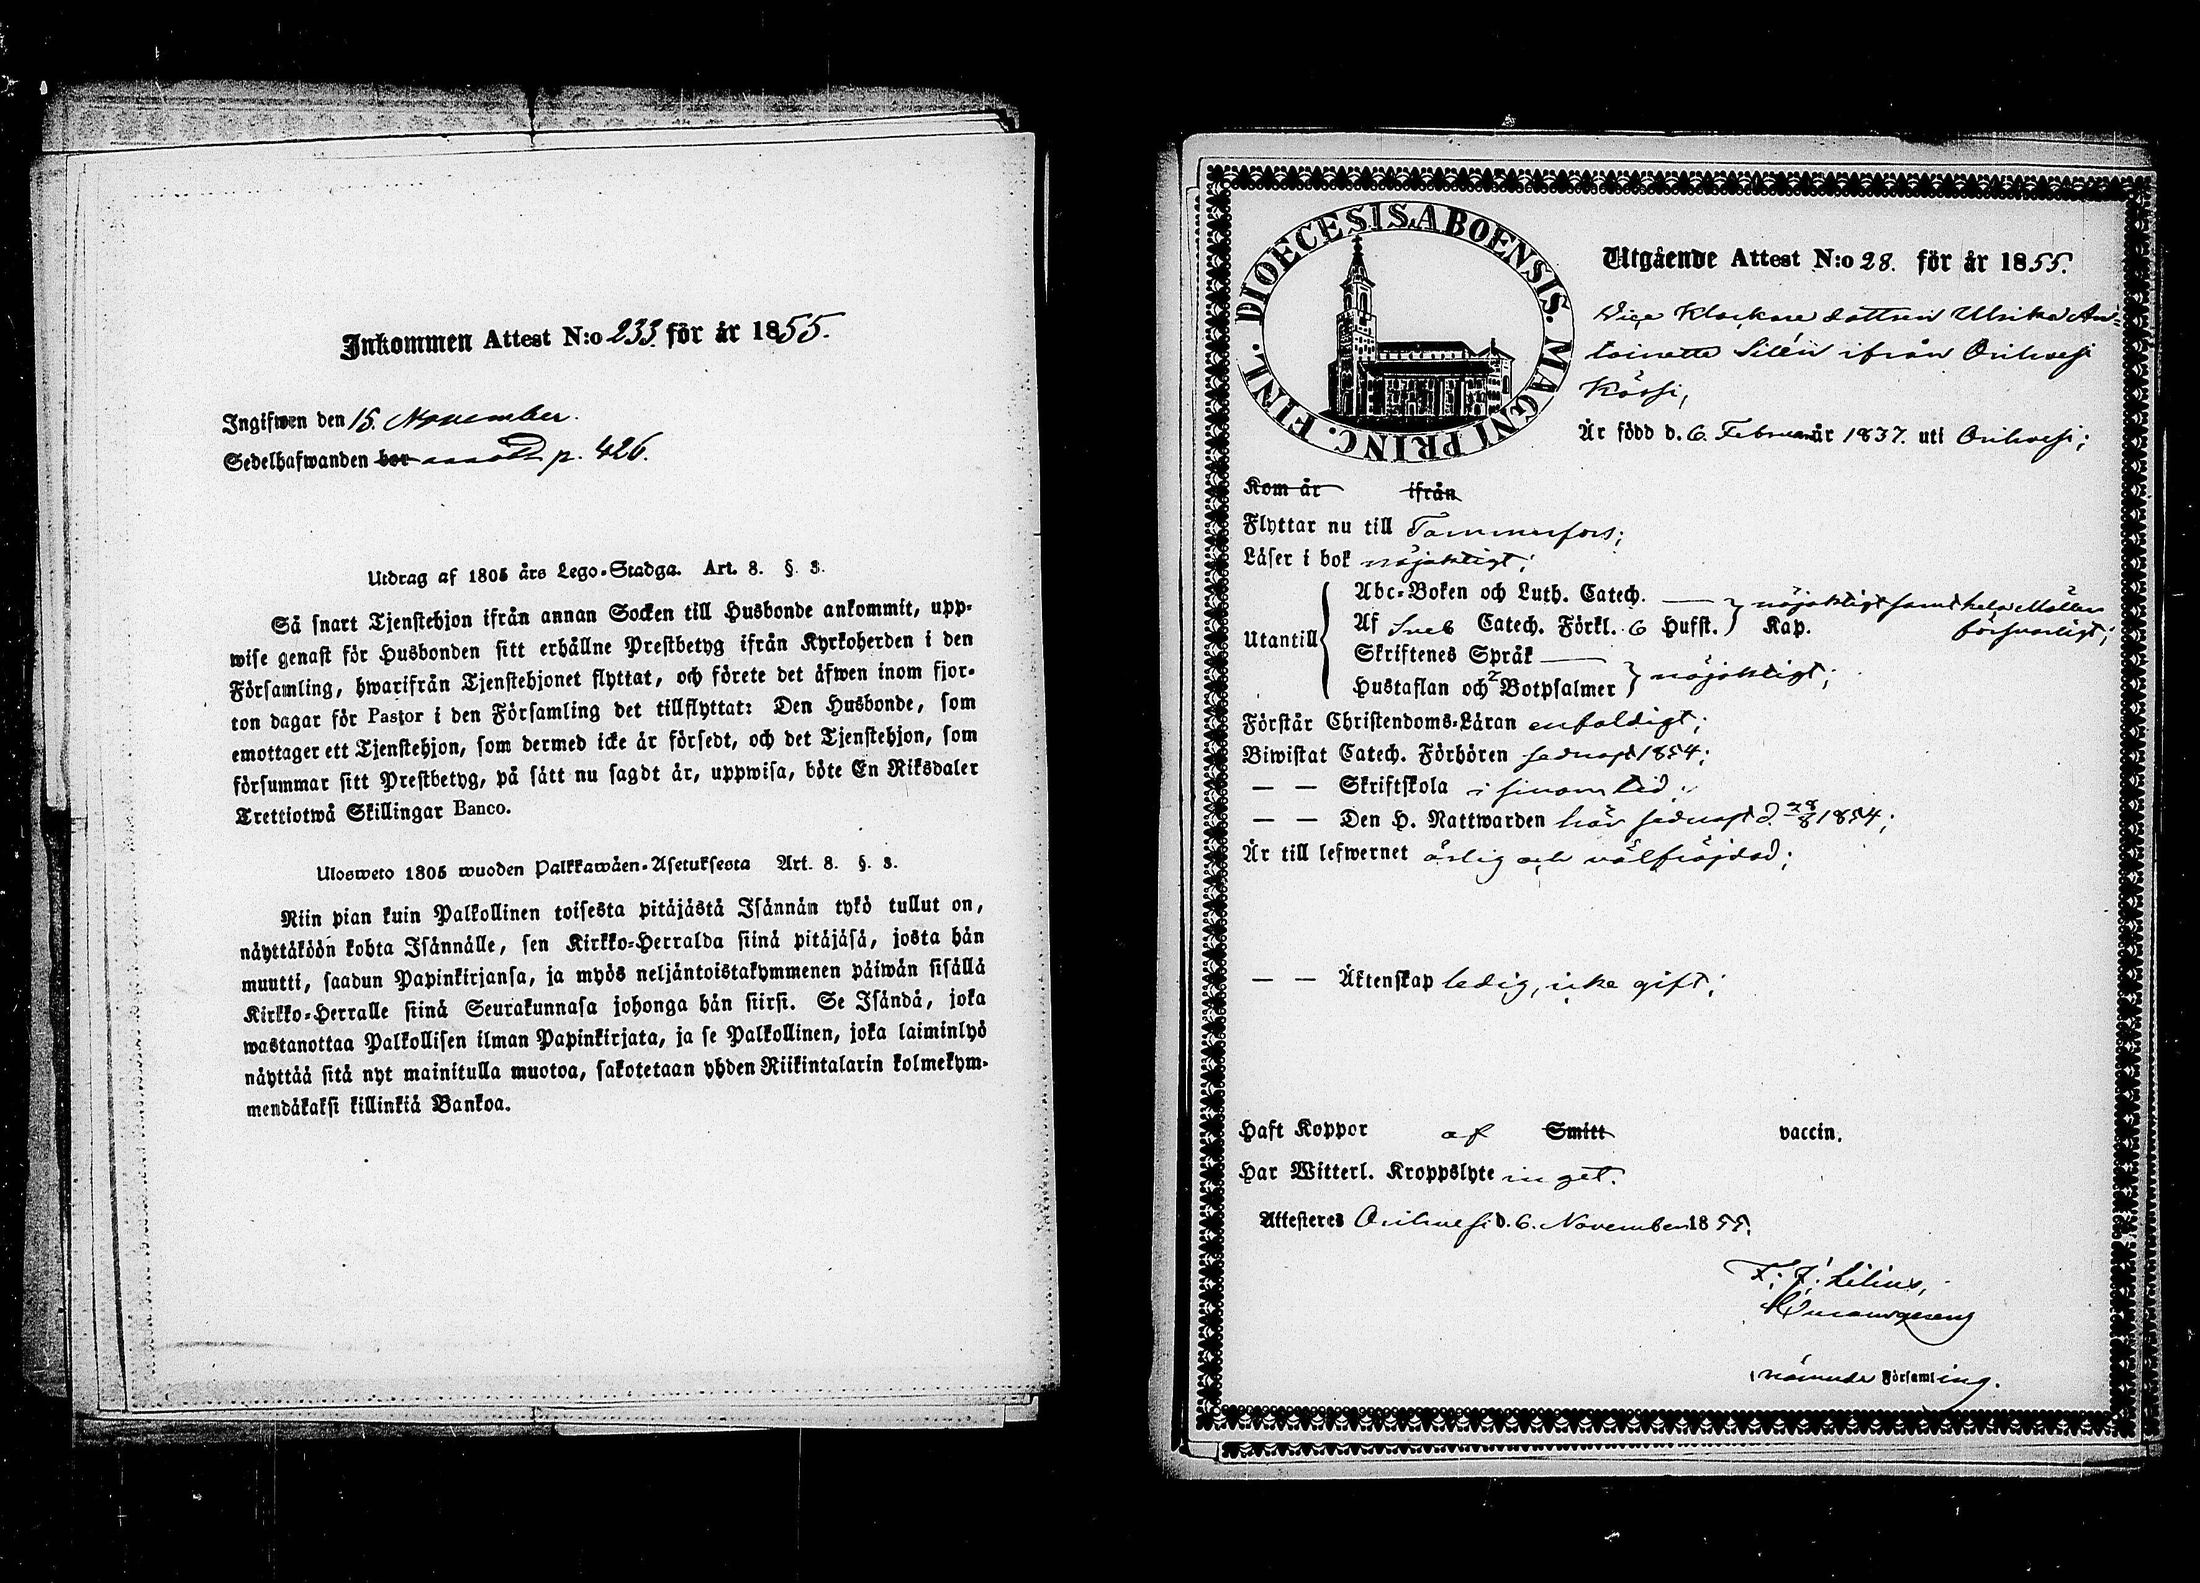 Inkommen Attest N:o 233 för år 1855.
Ingifwen den 15. November.
Sedelhafwanden bor p. 426.
Utdrag af 1805 års Lego-Stadga. Art. 8. §. 3.
Så snart Tjenstehjon ifrån annan Socken till Husbonde ankommit, upp-
wise genast för Husbonden sitt erhållne Prestbetyg ifrån Kyrkoherden i den
Församling, hwarifrån Tjenstehjonet flyttat, och förete det äfwen inom fjor-
ton dagar för Pastor i den Församling det tillflyttat: Den Husbonde, som
emottager ett Tjenstehjon, som dermed icke är försedt, och det Tjenstehjon, som
försummar sitt Prestbetyg, på sätt nu sagdt är, uppwisa, böte En Riksdaler
Trettiotwå Skillingar Banco.
Ulosweto 1805 wuoden Palkkawäen-Asetuksesta Art. 8. §. 3.
Niin pian kuin Palkollinen toisesta pitäjästä Isännän tykö tullut on,
näyttäköön kohta Isännälle, sen Kirkko-Herralda siinä pitäjäsä, josta hän
muutti, saadun Papinkirjansa, ja myös neljäntoistakymmenen päiwän sisällä
Kirkko-Herralle siinä Seurakunnasa johonga hän siirsi. Se Isändä, joka
wastanottaa Palkollisen ilman Papinkirjata, ja se Palkollinen, joka laiminlyö
näyttää sitä nyt mainitulla muotoa, sakotetaan yhden Riikintalarin kolmekym-
mendäkaksi killinkiä Bankoa.
DIOECESIS. ABOENSIS. MAGNI PRINC. FINL.
Utgående Attest N:o 28. för år 1855.
Vice Klockare dottren Ulrika An-
toinette Silén ifrån Orihvesi
Kössi,
Är född d. 6. Februar år 1837. uti Orihvesi;
Kom år ifrån
Flyttar nu till Tammerfors;
Läser i bok nöjaktigt;
Utantill
Abc-Boken och Luth. Catech. nöjaktigt samt hela Möllers
Af Sveb Catech. Förkl. 6 Hufst. Kap. försvarligt;
Skriftenes Språk
Hustaflan och 2 Botpsalmer nöjaktigt;
Förstår Christendoms-Läran enfaldigt;
Biwistat Catech. Förhören sednast 1854;
— — Skriftskola i sinom tid;
— — Den H. Nattwarden här sednast d. 28/8 1854;
Är till lefwernet ärlig och välfrejdad;
— — Äktenskap ledig, icke gift;
Haft Koppor af Smitt vaccin.
Har Witterl. Kroppslyte inget.
Attesteres Orihvesi d. 6. November 1855.
F. J. Lilius,
i nämnde Församling.